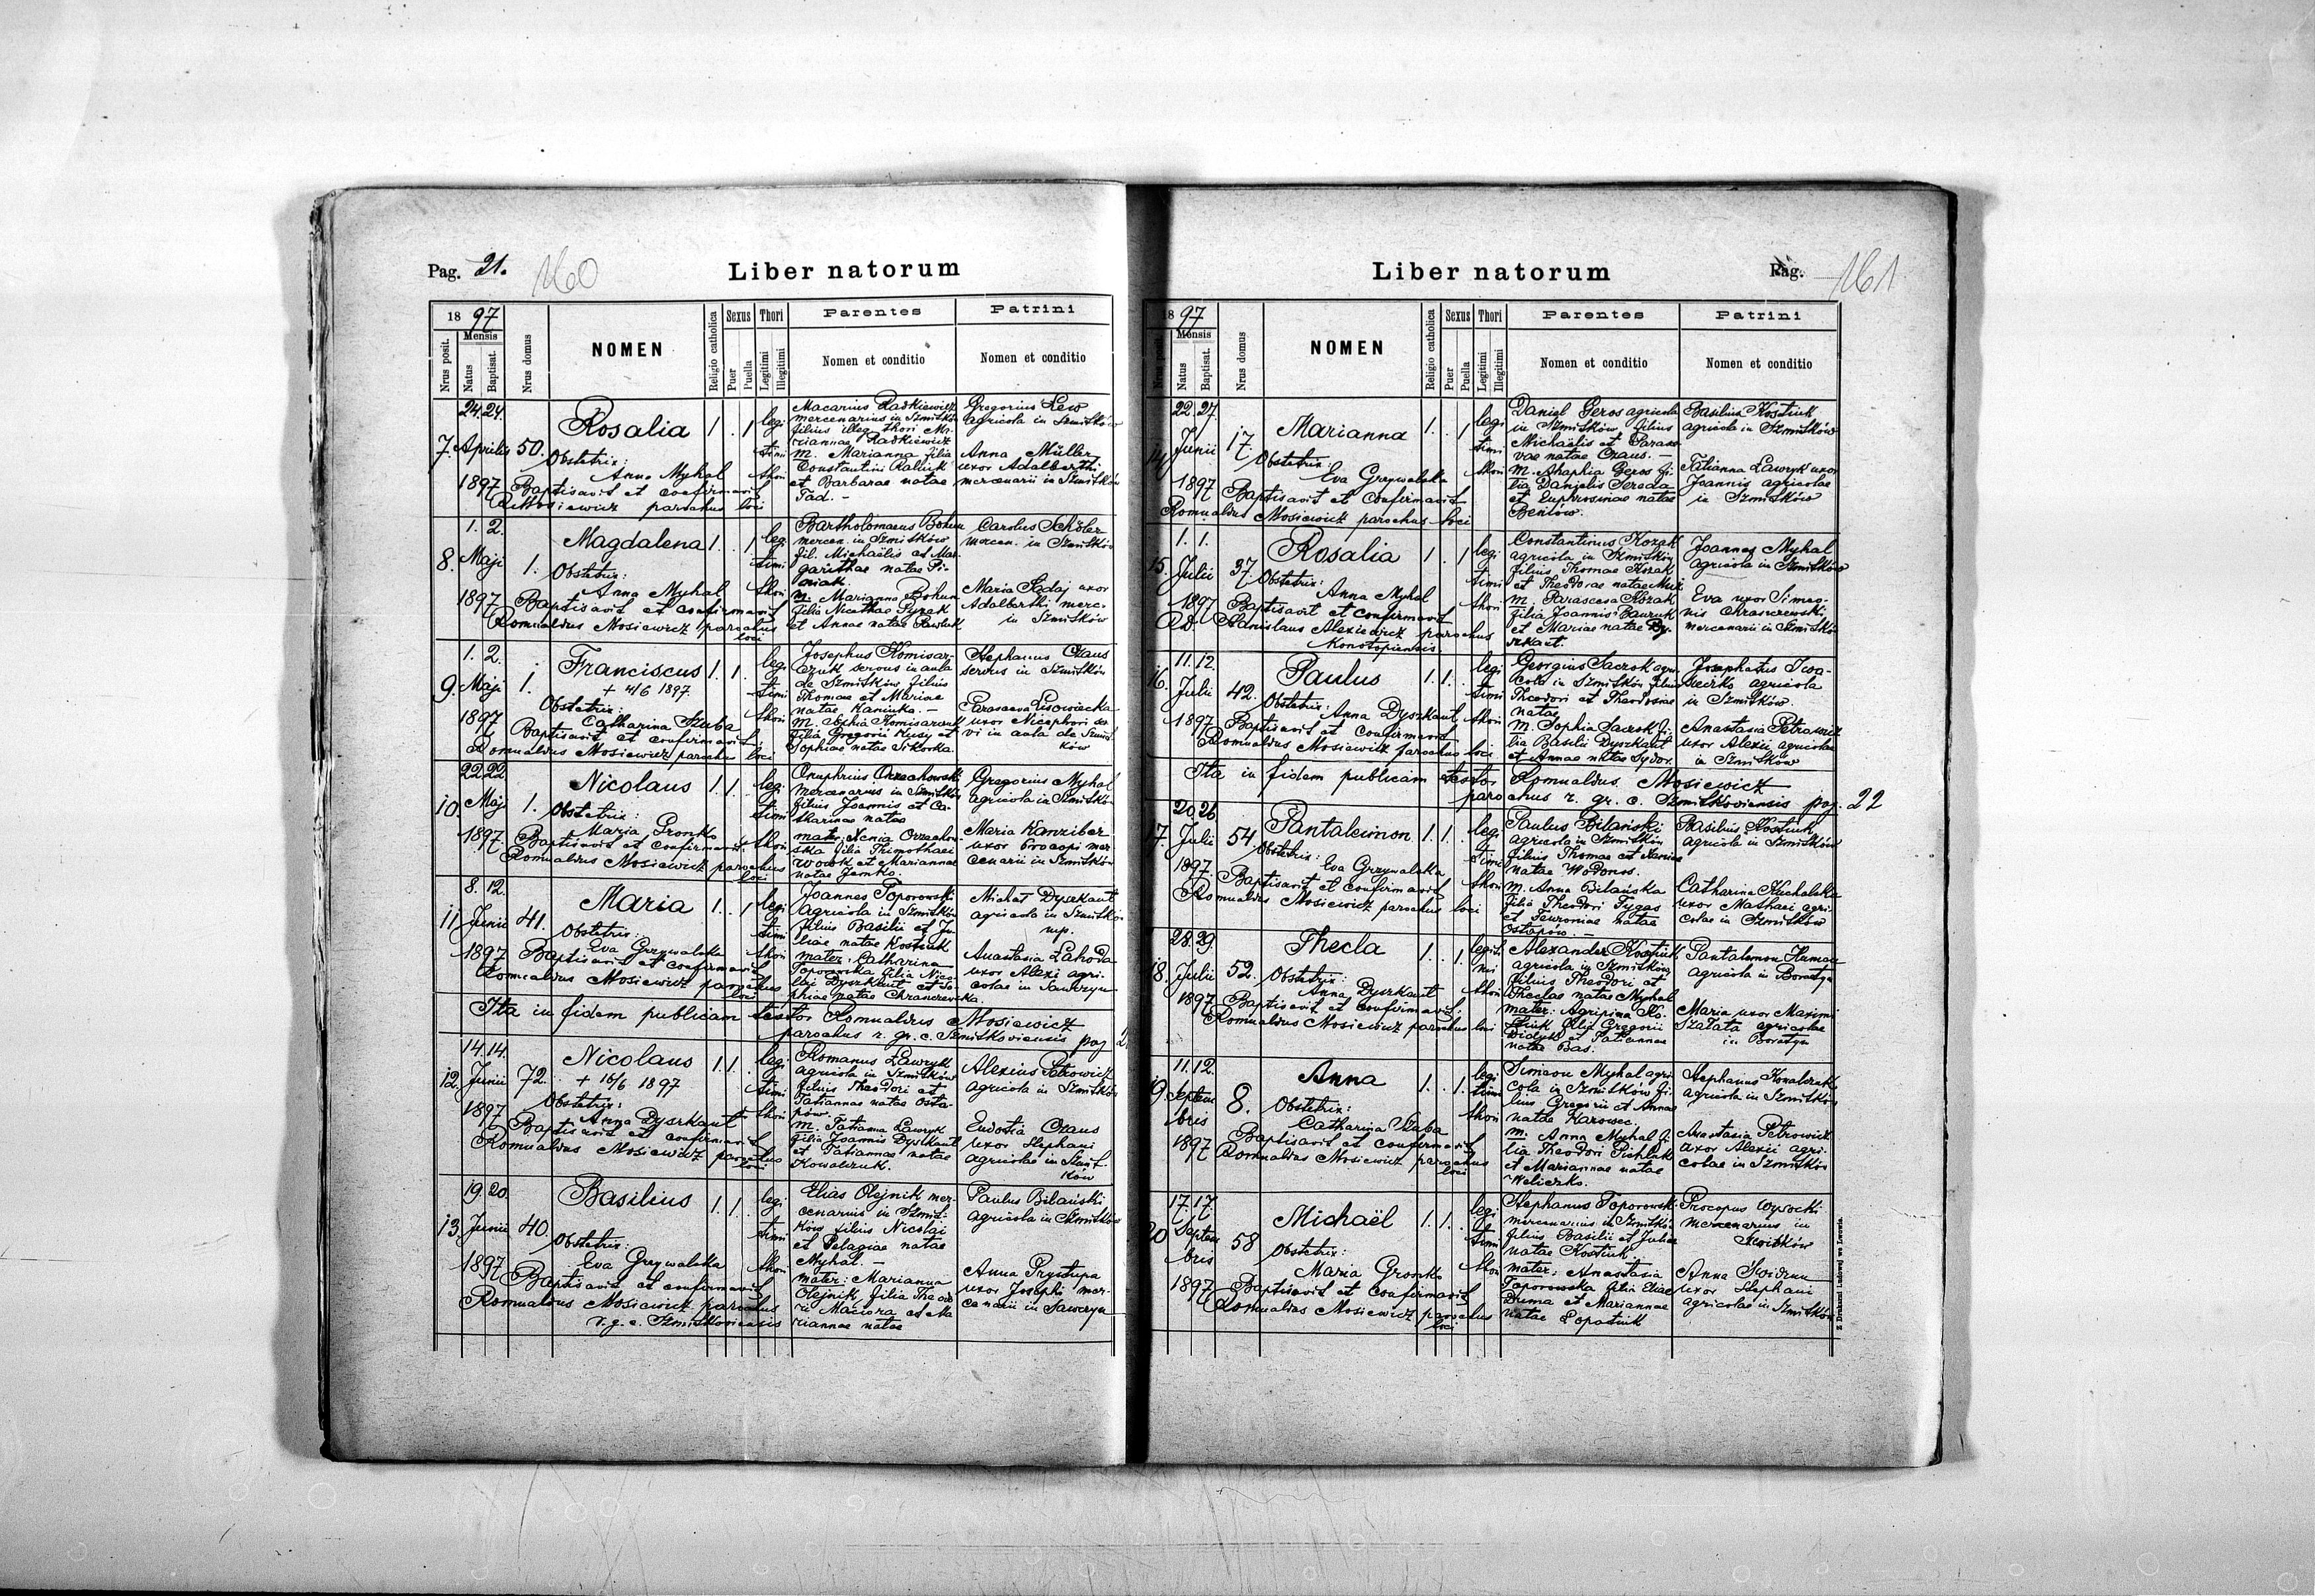 Pag. 21. 160 Liber natorum
18 97
Mensis
Nrus posit.
Natus
Baptisat.
Nrus domus
NOMEN
Religio catholica
Sexus
Puer
Puella
Thori
Legitimi
Illegitimi
Parentes
Nomen et conditio
Patrini
Nomen et conditio
7. 24. 24. Aprilis 1897 50.
Rosalia 1 1
Obstetrix:
Anna Myhal
Baptisavit et confirmavit
R. Mosiewicz parochus loci
legi
timi
thori
Macarius Radkiewicz
mercenarius in Szmitków
filius illeg. thori Ma-
riannae Radkiewicz
m. Marianna filia
Constantini
et Barbarae natae
Gregorius Lew
agricola in Szmitków
Anna Müller
uxor Adalberthi
mercenarii in Szmitków
8. 1. 2. Maji 1897 1.
Magdalena 1 1
Obstetrix:
Anna Myhal
Baptisavit et confirmavit
Romualdus Mosiewicz parochus
loci
legi
timi
thori
Bartholomaeus Bohun
mercen. in Szmitków
fil. Michaëlis et Mar-
garithae natae Pi-
m. Marianna Bohun
filia Nicethae
et Annae natae Pawluk
Carolus
mercen. in Szmitków
Maria uxor
Adalberthi merc.
in Szmitków
9. 1. 2. Maji 1897 1.
Franciscus 1 1
+ 4/6 1897.
Obstetrix:
Catharina Szuba
Baptisavit et confirmavit
Romualdus Mosiewicz parochus loci
legi
timi
thori
Josephus Komisar-
czuk servus in aula
de Szmitków filius
Thomae et Mariae
natae Kaniuka. -
m. Sophia Komisarczuk
filia Gregorii et
Sophiae natae Sikorka.
Stephanus Czaus
servus in Szmitków
Parasceva Lisowiecka
uxor Nicephori ser-
vi in aula de Szmit-
ków
10. 22. 22. Maji 1897 1.
Nicolaus 1. 1.
Obstetrix:
Maria Gronko
Baptisavit et confirmavit
Romualdus Mosiewicz parochus
loci
legi
timi
thori
Onuphrius Orzechowski
mercenarius in Szmitków
filius Joannis et Ca-
tharinae natae
mater: Xenia Orzechow-
ska filia Thimothaei
Wowk et Mariannae
natae Jemko.
Gregorius Myhal
agricola in Szmitków
Maria Kanziber
uxor Procopi mer-
cenarii in Szmitków
11. 8. 12. Junii 1897 41.
Maria 1. 1
Obstetrix:
Eva Grzywalska
Baptisavit et confirmavit
Romualdus Mosiewicz parochus
loci
legi
timi
thori
Joannes Toporowski
agricola in Szmitków
filius Basilii et Ju-
liae natae Kostiuk
mater: Catharina
Toporowska filia Nico-
lai Dyszkant et So-
phiae natae Chraszczewska.
Michał Dyszkant
agricola in Szmitków
Anastasia Lahoda
uxor Alexi agri-
colae in Sawczyn
Ita in fidem publicam testor Romualdus Mosiewicz
parochus r. gr. c. Szmitkoviensis pag
12. 14. 14. Junii 1897 72.
Nicolaus 1. 1.
+ 16/6 1897
Obstetrix:
Anna Dyszkant
Baptisavit et confirmavit
Romualdus Mosiewicz parochus
loci
legi
timi
thori
Romanus Ławryk
agricola in Szmitków
filius Theodori et
Tatiannae natae Osta-
pów.
m. Tatianna Ławryk
filia Joannis Dyszkant
et Tatiannae natae
Kowalczuk.
Alexius Petrowicz
agricola in Szmitków
Eudotia Czaus
uxor Stephani
agricolae in Szmit-
ków
13. 19. 20. Junii 1897 40.
Basilius 1. 1.
Obstetrix:
Eva Grzywalska
Baptisavit et confirmavit
Romualdus Mosiewicz parochus
r. g. c. Szmitkoviensis
legi
timi
thori
Elias Olejnik mer-
cenarius in Szmit-
ków filius Nicolai
et Pelagiae natae
Myhal. -
mater: Marianna
Olejnik, filia Theodo-
ri Maciora et Ma-
riannae natae
Paulus Bilański
agricola in Szmitków
Anna Prystupa
uxor Josephi mer-
cenarii in Sawczyn
Liber natorum Pag. 161
18 97
Mensis
Natus
Baptisat.
Nrus domus
NOMEN
Religio catholica
Sexus
Puer
Puella
Thori
Legitimi
Illegitimi
Parentes
Nomen et conditio
Patrini
Nomen et conditio
14 22. 27. Junii 1897 17.
Marianna 1. 1
Obstetrix
Eva Grzywalska
Baptisavit et Confirmavit
Romualdus Mosiewicz parochus loci
legi
timi
thori
Daniel Geros agricola
in Szmitków, filius
Michaëlis et Parasce-
vae natae Czaus. -
m. Ahaphia Geros fi-
lia Danielis Sereda
et Euphrosinae natae
Beniów.
Basilius Kostiuk
agricola in Szmitków
Tatianna Ławryk uxor
Joannis agricolae
in Szmitków
15. 1. 1. Julii 1897 37.
Rosalia 1 1
Obstetrix:
Anna Myhal
Baptisavit et confirmavit
Stanislaus Alexiewicz parochus
Konotopiensis
legi
timi
thori
Constantinus Kozak
agricola in Szmitków
filius Thomae Kozak
et Theodorae natae
m. Parasceva Kozak
filia Joannis
et Mariae natae Dy-
szkant.
Joannes Myhal
agricola in Szmitków
Eva uxor Simeo-
nis Chraszczewski
mercenarii in Szmitków
16. 11. 12. Julii 1897 42.
Paulus 1. 1.
Obstetrix: Anna Dyszkant
Baptisavit et Confirmavit
Romualdus Mosiewicz parochus loci
legi
timi
thori
Georgius Saczok agri-
cola in Szmitków filius
Theodori et Theodosiae
natae
m. Sophia Saczok fi-
lia Basilii Dyszkant
et Annae natae Sydor.
Josephatus Iwa-
sieczko agricola
in Szmitków.
Anastasia Petrowicz
uxor Alexii agricolae
in Szmitków
Ita in fidem publicam testor Romualdus Mosiewicz
parochus r. gr. c. Szmitkoviensis pag. 22
17. 20. 26 Julii 1897 54
Pantaleimon 1. 1.
Obstetrix: Eva Grzywalska
Baptisavit et confirmavit
Romualdus Mosiewicz parochus loci
legi
timi
thori
Paulus Bilański
agricola in Szmitków
filius Thomae et Xeniae
natae Wodonos.
m. Anna Bilańska
filia Theodori Tygas
et Fewroniae natae
Ostapów. -
Basilius Kostiuk
agricola in Szmitków
Catharina Kuchalska
uxor Mathaei agri-
colae in Szmitków
18. 28. 29. Julii 1897 52.
Thecla 1. 1
Obstetrix:
Anna Dyszkant
Baptisavit et confirmavit
Romualdus Mosiewicz parochus loci
legiti
mi
thori
Alexander Kostiuk
agricola in Szmitków
filius Theodori et
Theclae natae Myhal
mater: Agripina Ko-
stiuk filia Gregorii
Didyk et Tatiannae
natae Bas.
Pantalemon Human
agricola in Boratyn
Maria uxor Maximi
Szałata agricolae
in Boratyn
19. 11. 12. Septembris 1897 8.
Anna 1. 1.
Obstetrix:
Catharina Szuba
Baptisavit et confirmavit
Romualdus Mosiewicz parochus
loci
legi
timi
thori
Simeon Myhal agri-
cola in Szmitków fi-
lius Gregorii et Annae
natae Karowec.
m. Anna Myhal fi-
lia Theodori Pichluk
et Mariannae natae
Weliczko.
Stephanus Kowalczuk
agricola in Szmitków
Anastasia Petrowicz
uxor Alexii agri-
colae in Szmitków
20 17. 17. Septembris 1897 58
Michaël 1. 1.
Obstetrix:
Maria Gronko
Baptisavit et Confirmavit
Romualdus Mosiewicz parochus
loci
legi
timi
thori
Stephanus Toporowski
mercenarius in Szmitków
filius Basilii et Juliae
natae Kostiuk.
mater: Anastasia
Toporowska filia Eliae
Duma et Mariannae
natae Łopatiuk
Procopus Wysocki
mercenarius in
Anna
uxor Stephani
agricolae in Szmitków
Z Drukarni Ludowej we Lwowie.